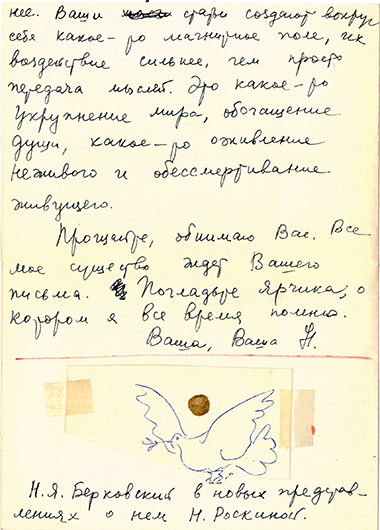 нее. Ваши статьи создают вокруг
себя какое-то магнитное поле, их
воздействие сильнее, чем просто
передача мыслей. Это какое-то
укрупнение мира, обогащение
души, какое-то оживление
неживого и обессмертивание
живущего.
Прощайте, обнимаю Вас. Все
мое существо ждет Вашего
письма. Погладьте Ярчика, о
котором я все время помню.
Ваша, Ваша Н.
Н.Я. Берковский в новых представ-
лениях о нем Н. Роскиной.